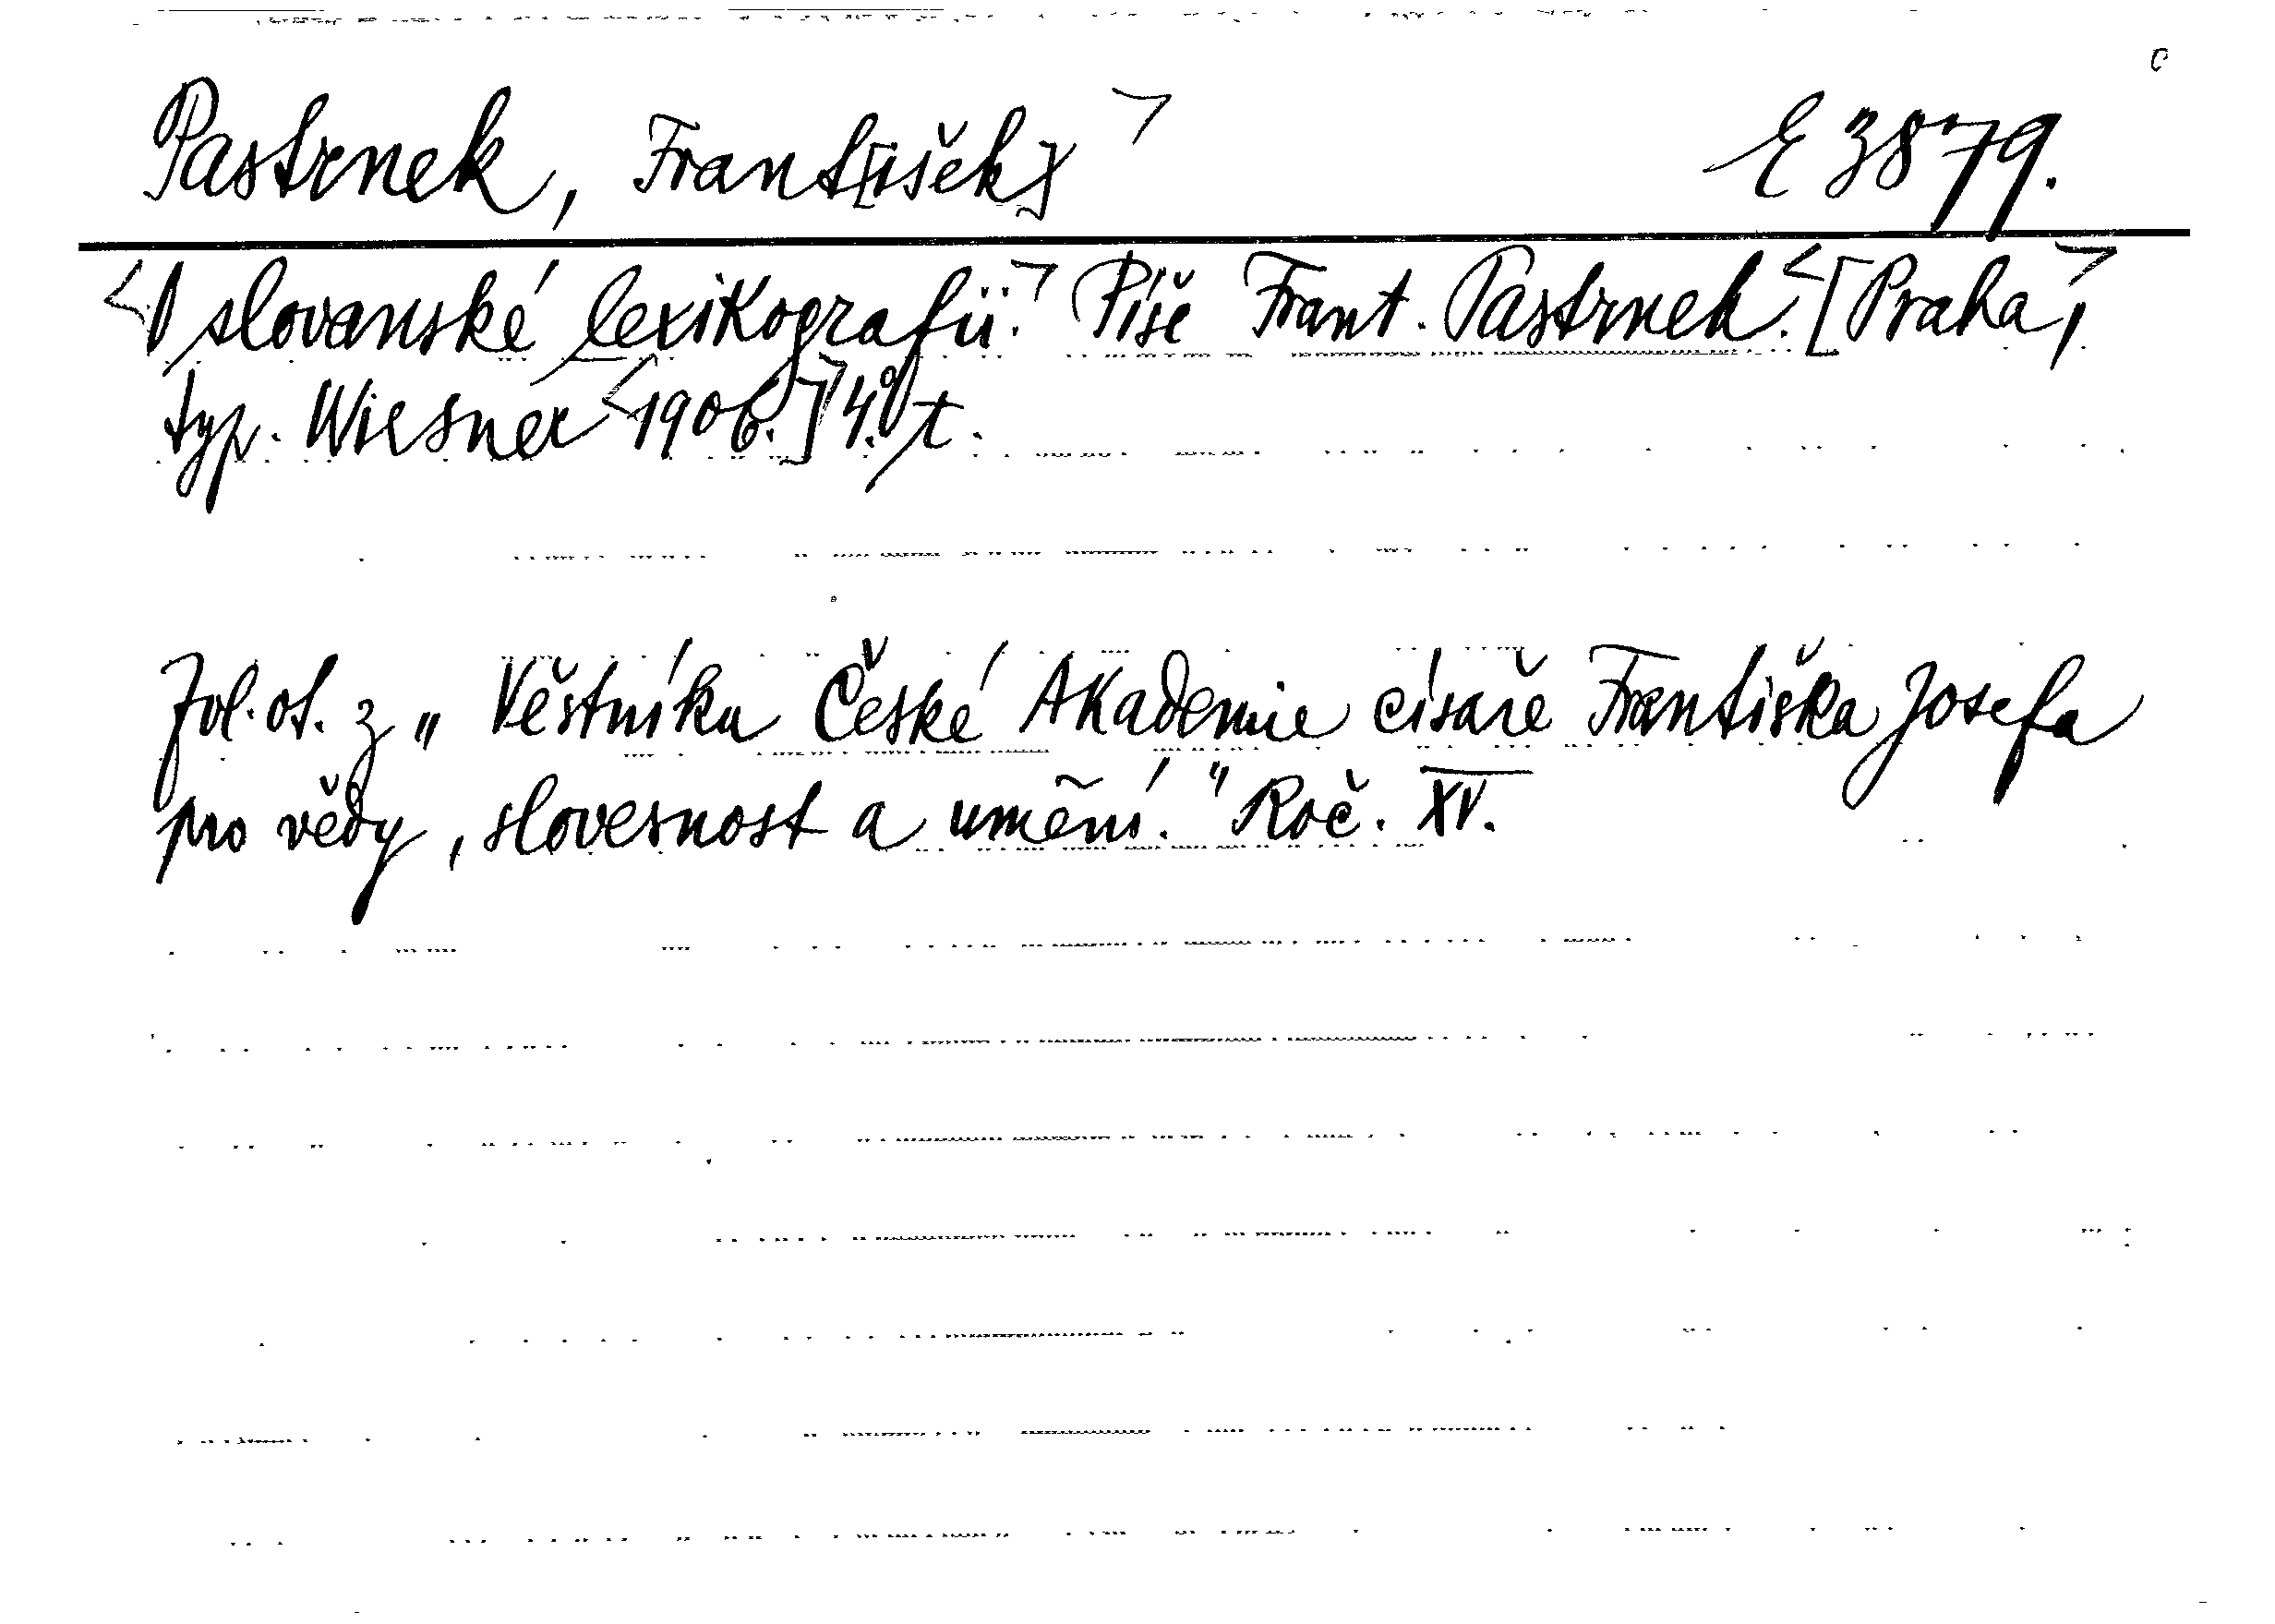 Pastrnek, Frant[išek] E 3879.
O slovanské lexikografii. Píše Frant. Pastrnek. [Praha,
typ. Wiesner 1906.] 4.° t.
Zvl. ot. z „Věstníku České Akademie císaře Františka Josefa
pro vědy, slovesnost a umění." Roč. XV.